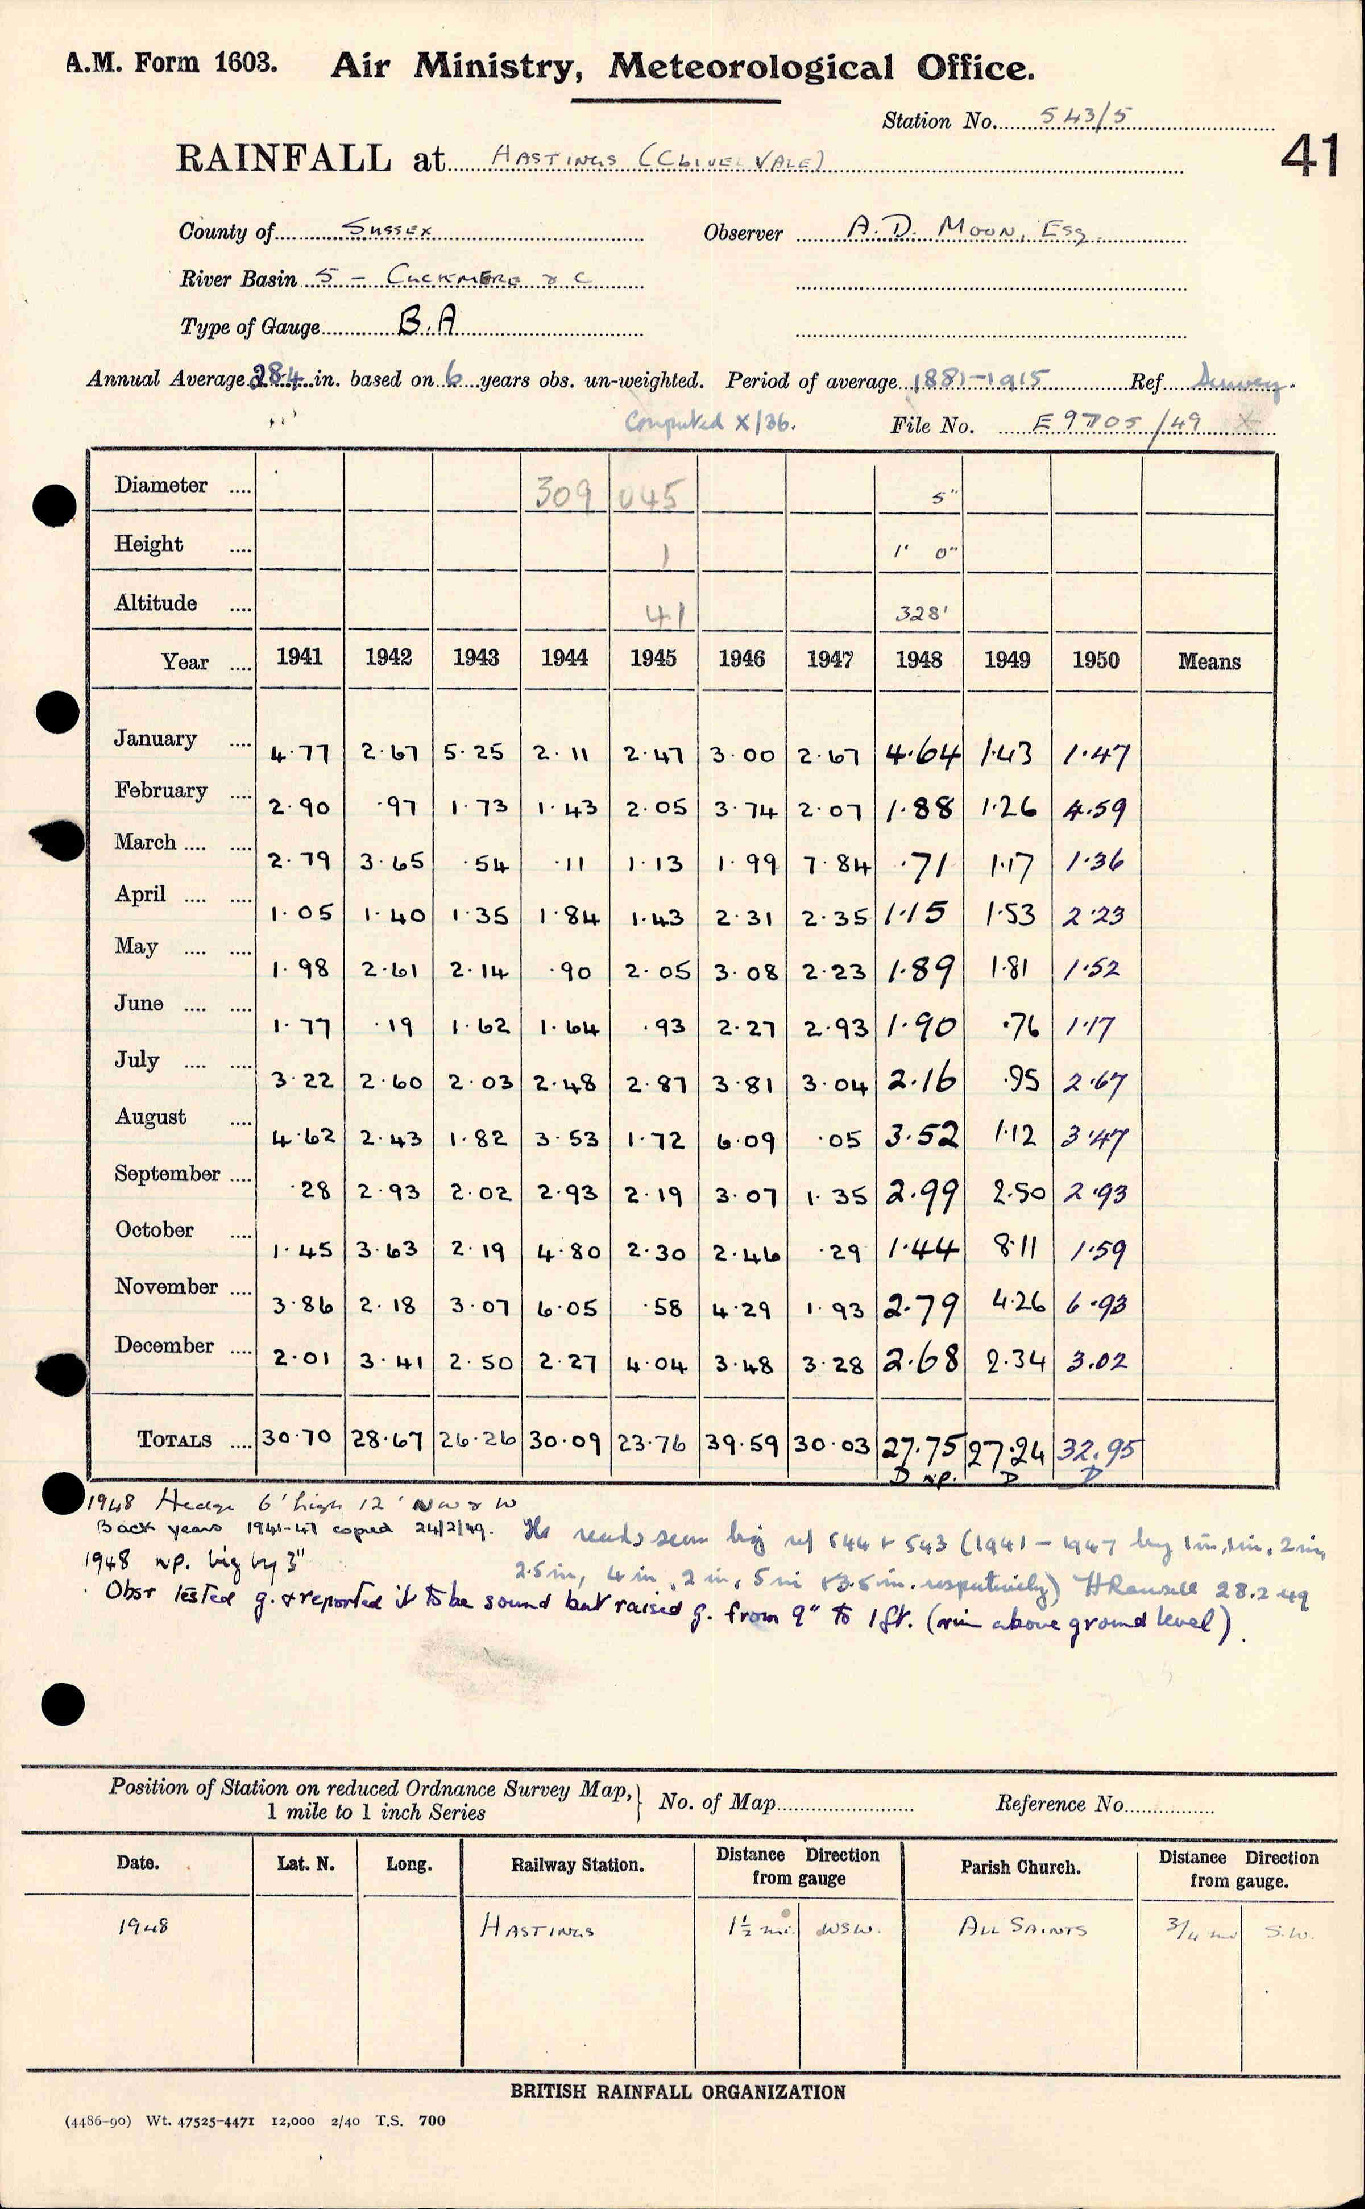 A.M. Form 1603. Air Ministry, Meteorological Office.
Station No. 543/5
41
RAINFALL at HASTINGS (CLIVE VALE)
County of SUSSEX Observer A.D. MOON, ESQ.
River Basin 5 - CUCKMERE & C
Type of Gauge B.A
Annual Average 28.4 in. based on 6 years obs. un-weighted. Period of average 1881-1915 Ref Survey.
Computed X/36. File No. E 9705/49 X
Diameter .... 309 045 5"
Height .... 1 1' 0"
Altitude .... 41 328'
Year .... 1941 1942 1943 1944 1945 1946 1947 1948 1949 1950 Means
January .... 4.77 2.67 5.25 2.11 2.47 3.00 2.67 4.64 1.43 1.47
February .... 2.90 .97 1.73 1.43 2.05 3.74 2.07 1.88 1.26 4.59
March .... .... 2.79 3.65 .54 .11 1.13 1.99 7.84 .71 1.17 1.36
April .... .... 1.05 1.40 1.35 1.84 1.43 2.31 2.35 1.15 1.53 2.23
May .... .... 1.98 2.61 2.14 .90 2.05 3.08 2.23 1.89 1.81 1.52
June .... .... 1.77 .19 1.62 1.64 .93 2.27 2.93 1.90 .76 1.17
July .... .... 3.22 2.60 2.03 2.48 2.87 3.81 3.04 2.16 .95 2.67
August .... 4.62 2.43 1.82 3.53 1.72 6.09 .05 3.52 1.12 3.47
September .... .28 2.93 2.02 2.93 2.19 3.07 1.35 2.99 2.50 2.93
October .... 1.45 3.63 2.19 4.80 2.30 2.46 .29 1.44 8.11 1.59
November .... 3.86 2.18 3.07 6.05 .58 4.29 1.93 2.79 4.26 6.93
December .... 2.01 3.41 2.50 2.27 4.04 3.48 3.28 2.68 2.34 3.02
TOTALS .... 30.70 28.67 26.26 30.09 23.76 39.59 30.03 27.75 27.24 32.95
D np. D D
1948 Hedge 6' high 12' NW & W
Back years 1941-47 copied 24/2/49. The reads seem big w/ 544 & 543 (1941 - 1947 by 1 in, 1 in, 2 in,
1948 np. big by 3" 2.5 in, 4 in, 2 in, 5 in & 3.5 in. respectively) 28.2.49
Obsr tested g. & reported it to be sound but raised g. from 9" to 1 ft. (rim above ground level).
Position of Station on reduced Ordnance Survey Map, 1 mile to 1 inch Series } No. of Map Reference No.
Date. Lat. N. Long. Railway Station. Distance Direction from gauge Parish Church. Distance Direction from gauge.
1948 HASTINGS 1½ mi. WSW. ALL SAINTS 3/4 mi S.W.
BRITISH RAINFALL ORGANIZATION
(4486-90) Wt. 47525-4471 12,000 2/40 T.S. 700